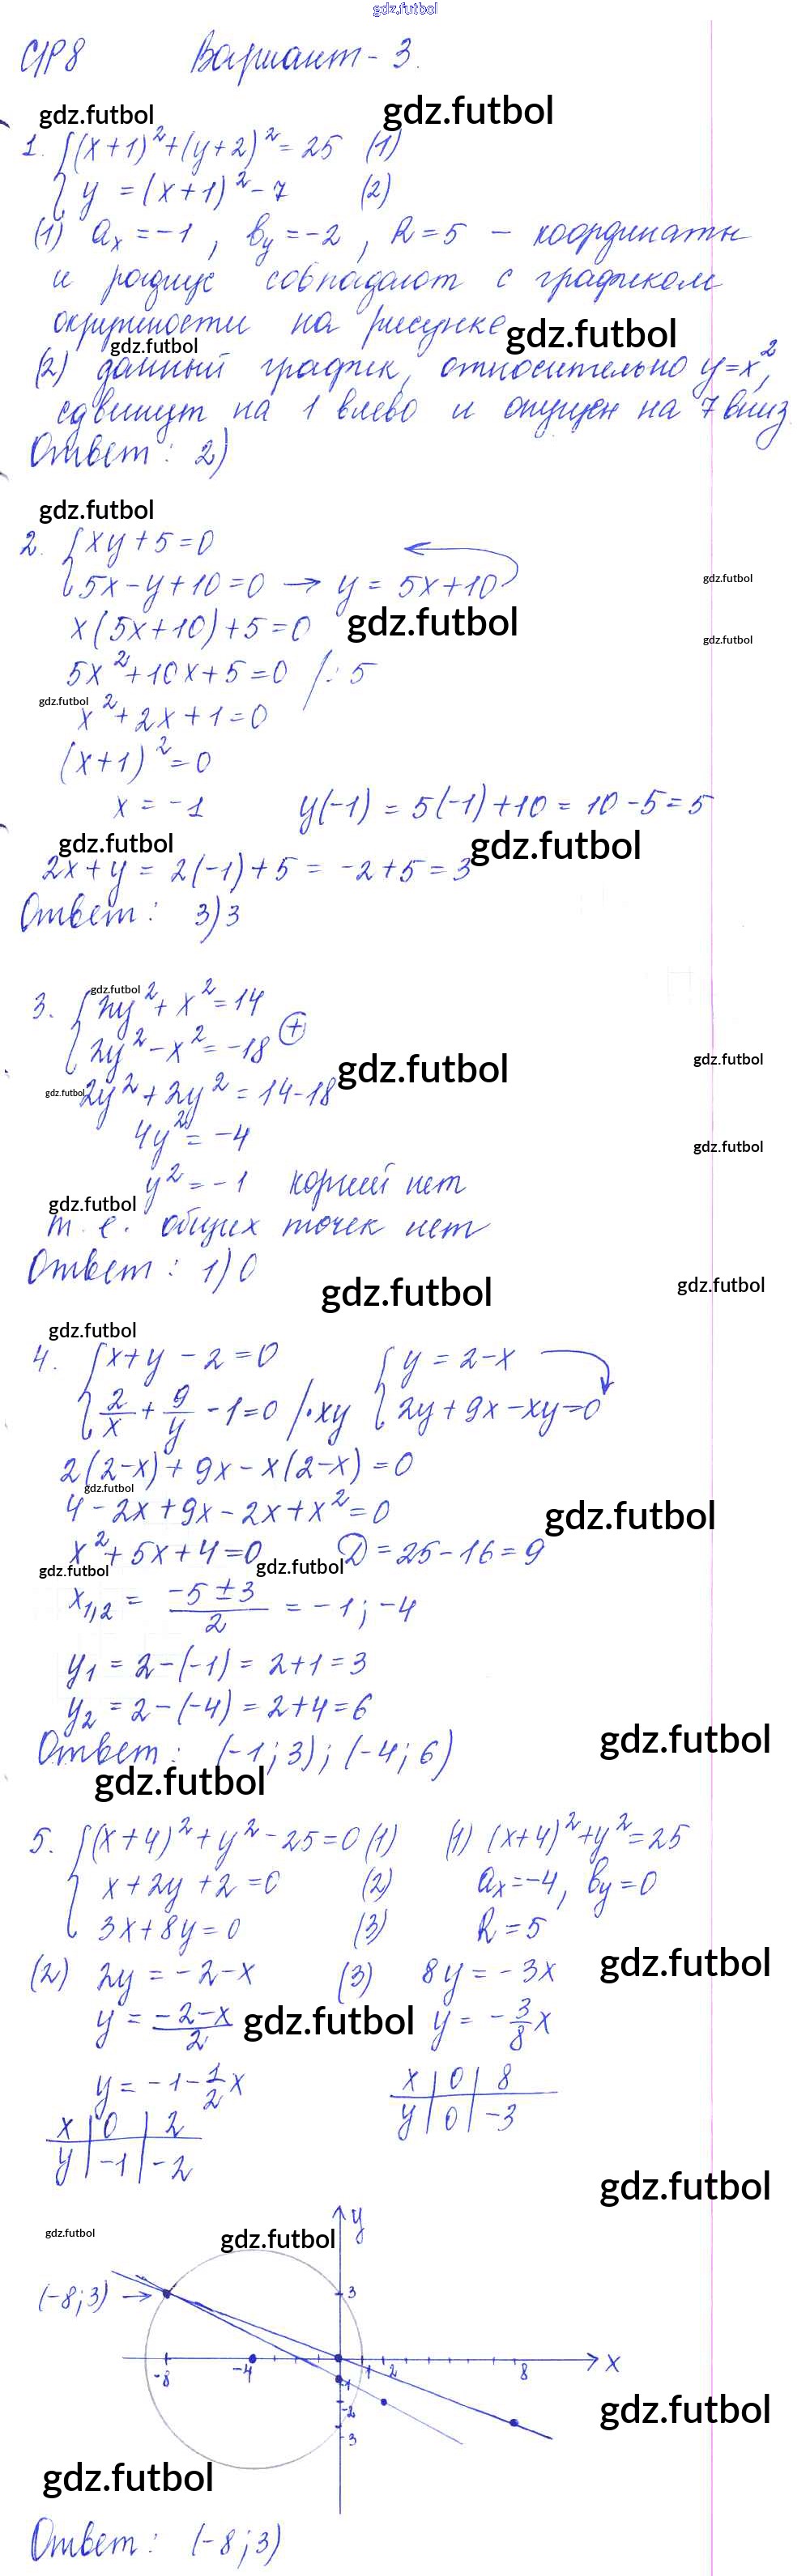 gdz.futbol
СР8 Вариант - 3.
gdz.futbol gdz.futbol
1. { (x+1)² + (y+2)² = 25 (1)
y = (x+1)² - 7 (2)
(1) aₓ = -1, bᵧ = -2, R = 5 - координаты
и радиус совпадают с графиком
окружности на рисунке gdz.futbol
gdz.futbol
(2) данный график, относительно y=x²,
сдвинут на 1 влево и опущен на 7 вниз
Ответ: 2)
gdz.futbol
2. { xy + 5 = 0
5x - y + 10 = 0 → y = 5x+10
gdz.futbol
x(5x+10) + 5 = 0 gdz.futbol
gdz.futbol
5x² + 10x + 5 = 0 /: 5
gdz.futbol
x² + 2x + 1 = 0
(x+1)² = 0
x = -1 y(-1) = 5(-1)+10 = 10-5 = 5
gdz.futbol gdz.futbol
2x + y = 2(-1)+5 = -2+5 = 3
Ответ: 3) 3
gdz.futbol
3. { 2y² + x² = 14
2y² - x² = -18 (+)
gdz.futbol gdz.futbol
gdz.futbol
2y² + 2y² = 14-18
4y² = -4
gdz.futbol
y² = -1 корней нет
gdz.futbol
т. е. общих точек нет
Ответ: 1) 0
gdz.futbol gdz.futbol
gdz.futbol
4. { x+y - 2 = 0 { y = 2-x
2/x + 9/y - 1 = 0 /·xy 2y + 9x - xy = 0
2(2-x) + 9x - x(2-x) = 0
gdz.futbol
4 - 2x + 9x - 2x + x² = 0
gdz.futbol
x² + 5x + 4 = 0 D = 25 - 16 = 9
gdz.futbol gdz.futbol
x₁,₂ = (-5 ± 3)/2 = -1; -4
y₁ = 2-(-1) = 2+1 = 3
y₂ = 2-(-4) = 2+4 = 6
gdz.futbol
Ответ: (-1; 3); (-4; 6)
gdz.futbol
5. { (x+4)² + y² - 25 = 0 (1) (1) (x+4)² + y² = 25
x + 2y + 2 = 0 (2) aₓ = -4, bᵧ = 0
3x + 8y = 0 (3) R = 5
gdz.futbol
(2) 2y = -2 - x (3) 8y = -3x
y = (-2-x)/2 gdz.futbol y = -3/8 x
y = -1 - 1/2 x
x | 0 | 8
y | 0 | -3
x | 0 | 2
y | -1 | -2
gdz.futbol
y
gdz.futbol gdz.futbol
(-8; 3) → 3
-8 -4 1 2 8 x
-1
-2
-3
gdz.futbol
gdz.futbol
Ответ: (-8; 3)